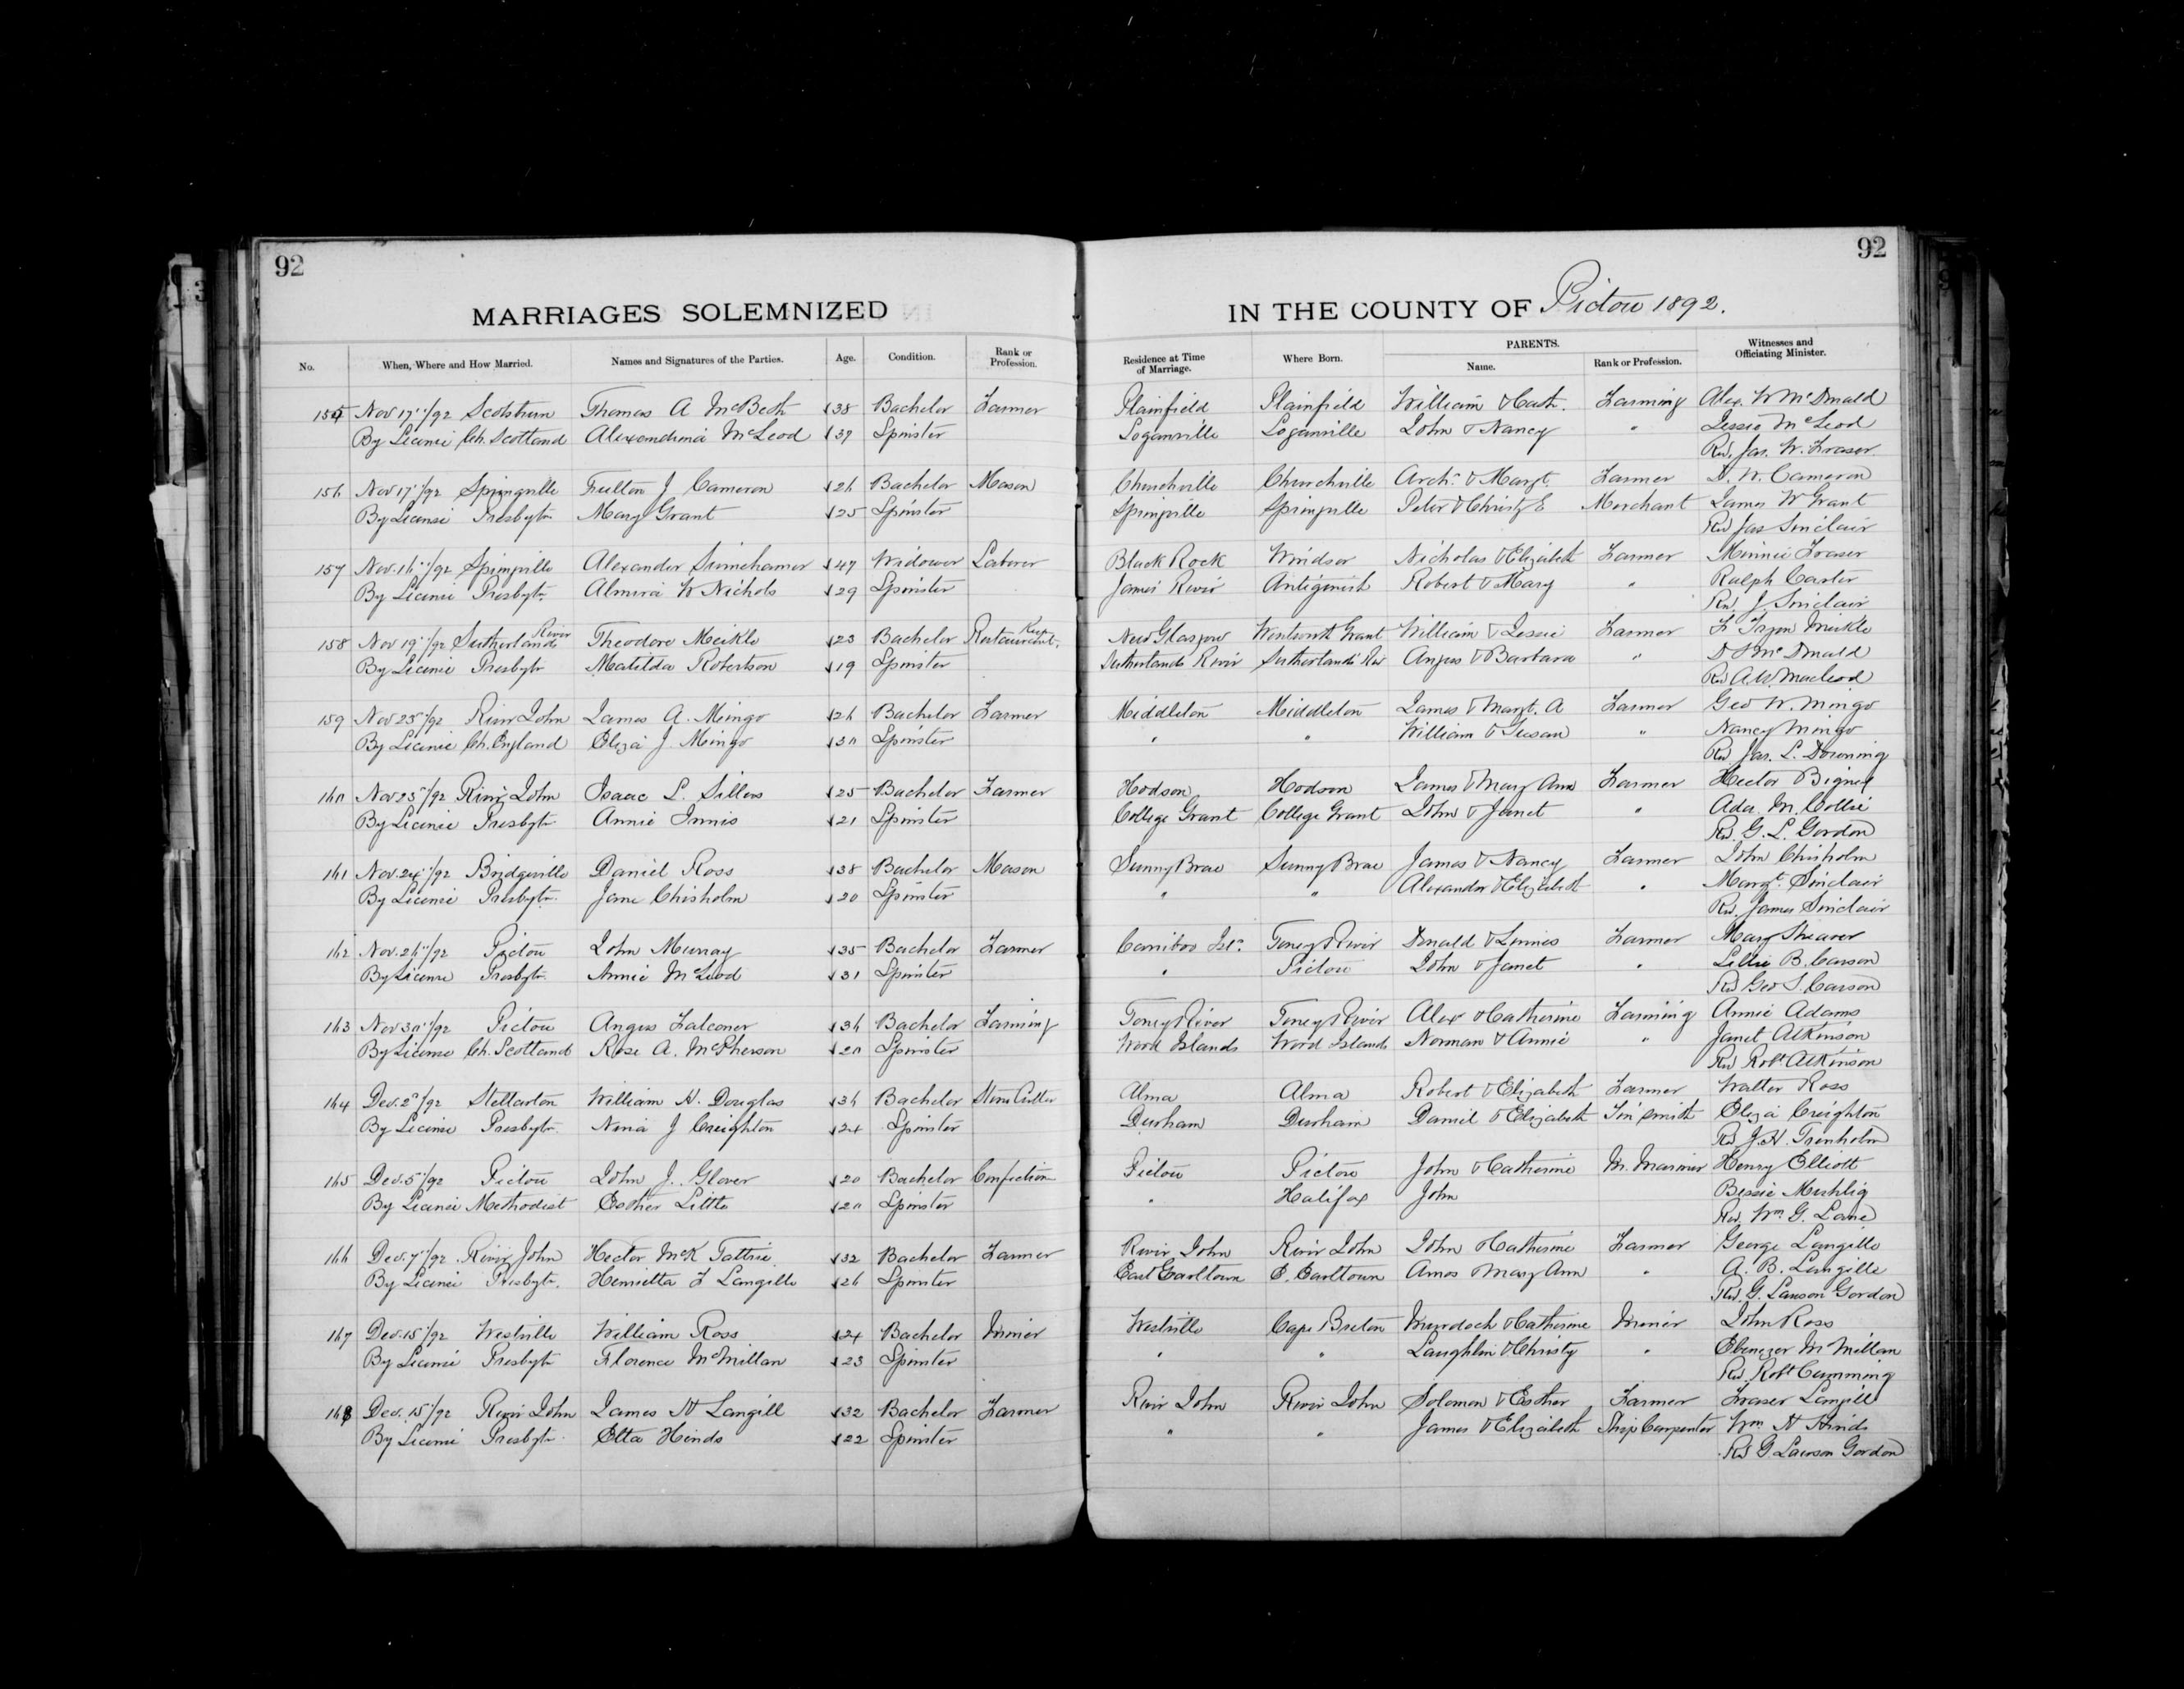 92
92
MARRIAGES SOLEMNIZED IN THE COUNTY OF Pictou 1892.
No. When, Where and How Married. Names and Signatures of the Parties. Age. Condition. Rank or Profession. Residence at Time of Marriage. Where Born. PARENTS. Name. Rank or Profession. Witnesses and Officiating Minister.
155 Nov 17"/92 Scotsburn Thomas A McBeth 38 Bachelor Farmer Plainfield Plainfield William & Cath. Farming Alex. W McDonald
By License Ch. Scotland Alexandrina McLeod 39 Spinster Loganville Loganville John & Nancy " Jessie McLeod
Rev. Jas. W. Fraser
156 Nov 17"/92 Springville Fulton J Cameron 26 Bachelor Mason Churchville Churchville Archd. & Margt. Farmer D. W. Cameron
By License Presbytn Mary Grant 25 Spinster Springville Springville Peter & Christy E Merchant James W Grant
Rev Jas Sinclair
157 Nov. 16"/92 Springville Alexander 47 Widower Laborer Black Rock Windsor Nicholas & Elizabeth Farmer Minnie Fraser
By License Presbytn Almira W Nichols 29 Spinster James River Antigonish Robert & Mary " Ralph Carter
Rev. J. Sinclair
158 Nov 19"/92 Sutherlands River Theodore Meikle 23 Bachelor Restaurant Keep. New Glasgow Wentworth Grant William & Jessie Farmer F Meikle
By License Presbytn Matilda Robertson 19 Spinster Sutherlands River Sutherlands Riv Angus & Barbara " D McDonald
Rev A. W. Macleod
159 Nov 23"/92 River John James A. Mingo 26 Bachelor Farmer Middleton Middleton James & Margt. A Farmer Geo W. Mingo
By License Ch. England Eliza J. Mingo 30 Spinster " " William & Susan " Nancy Mingo
Rev Jas. L. Downing
160 Nov 23"/92 River John Isaac L. Sillers 25 Bachelor Farmer Hodson Hodson James & Mary Ann Farmer Hector Bigney
By License Presbytn Annie Innis 21 Spinster College Grant College Grant John & Janet " Ada M. Collie
Rev. G. L. Gordon
161 Nov. 24"/92 Bridgeville Daniel Ross 38 Bachelor Mason Sunny Brae Sunny Brae James & Nancy Farmer John Chisholm
By License Presbytn. Jane Chisholm 20 Spinster " " Alexander & Elizabeth " Margt. Sinclair
Rev. James Sinclair
162 Nov. 26"/92 Pictou John Murray 35 Bachelor Farmer Cariboo Isl. Toney River Donald & Farmer Mary Shearer
By License Presbytn Annie McLeod 31 Spinster " Pictou John & Janet " Lillie B. Carson
Rev Geo S. Carson
163 Nov 30"/92 Pictou Angus Falconer 36 Bachelor Farming Toney River Toney River Alex & Catherine Farming Annie Adams
By License Ch. Scotland Rose A. McPherson 20 Spinster Wood Islands Wood Islands Norman & Annie " Janet Atkinson
Rev Robt Atkinson
164 Dec. 2"/92 Stellarton William H. Douglas 36 Bachelor Stone Cutter Alma Alma Robert & Elizabeth Farmer Walter Ross
By License Presbytn. Nina J Creighton 24 Spinster Durham Durham Daniel & Elizabeth Tin Smith Eliza Creighton
Rev J. H. Trenholm
165 Dec. 5"/92 Pictou John J. Glover 20 Bachelor Confection Pictou Pictou John & Catherine M. Mariner Henry Elliott
By License Methodist Esther Little 20 Spinster " Halifax John Bessie
Rev. Wm. G. Lane
166 Dec. 7"/92 River John Hector McK Tattrie 32 Bachelor Farmer River John River John John & Catherine Farmer George Langille
By License Presbytn. Henrietta F Langille 26 Spinster East Earltown E. Earltown Amos & Mary Ann " A. B. Langille
Rev. G. Lawson Gordon
167 Dec. 15"/92 Westville William Ross 24 Bachelor Miner Westville Cape Breton Murdoch & Catherine Miner John Ross
By License Presbytn Florence McMillan 23 Spinster " " Laughlin & Christy " Ebenezer McMillan
Rev. Robt Cumming
168 Dec. 15"/92 River John James W Langill 32 Bachelor Farmer River John River John Solomon & Esther Farmer Fraser Langill
By License Presbytn. Etta Hinds 22 Spinster " " James & Elizabeth Ship Carpenter Wm. Hinds
Rev G. Lawson Gordon